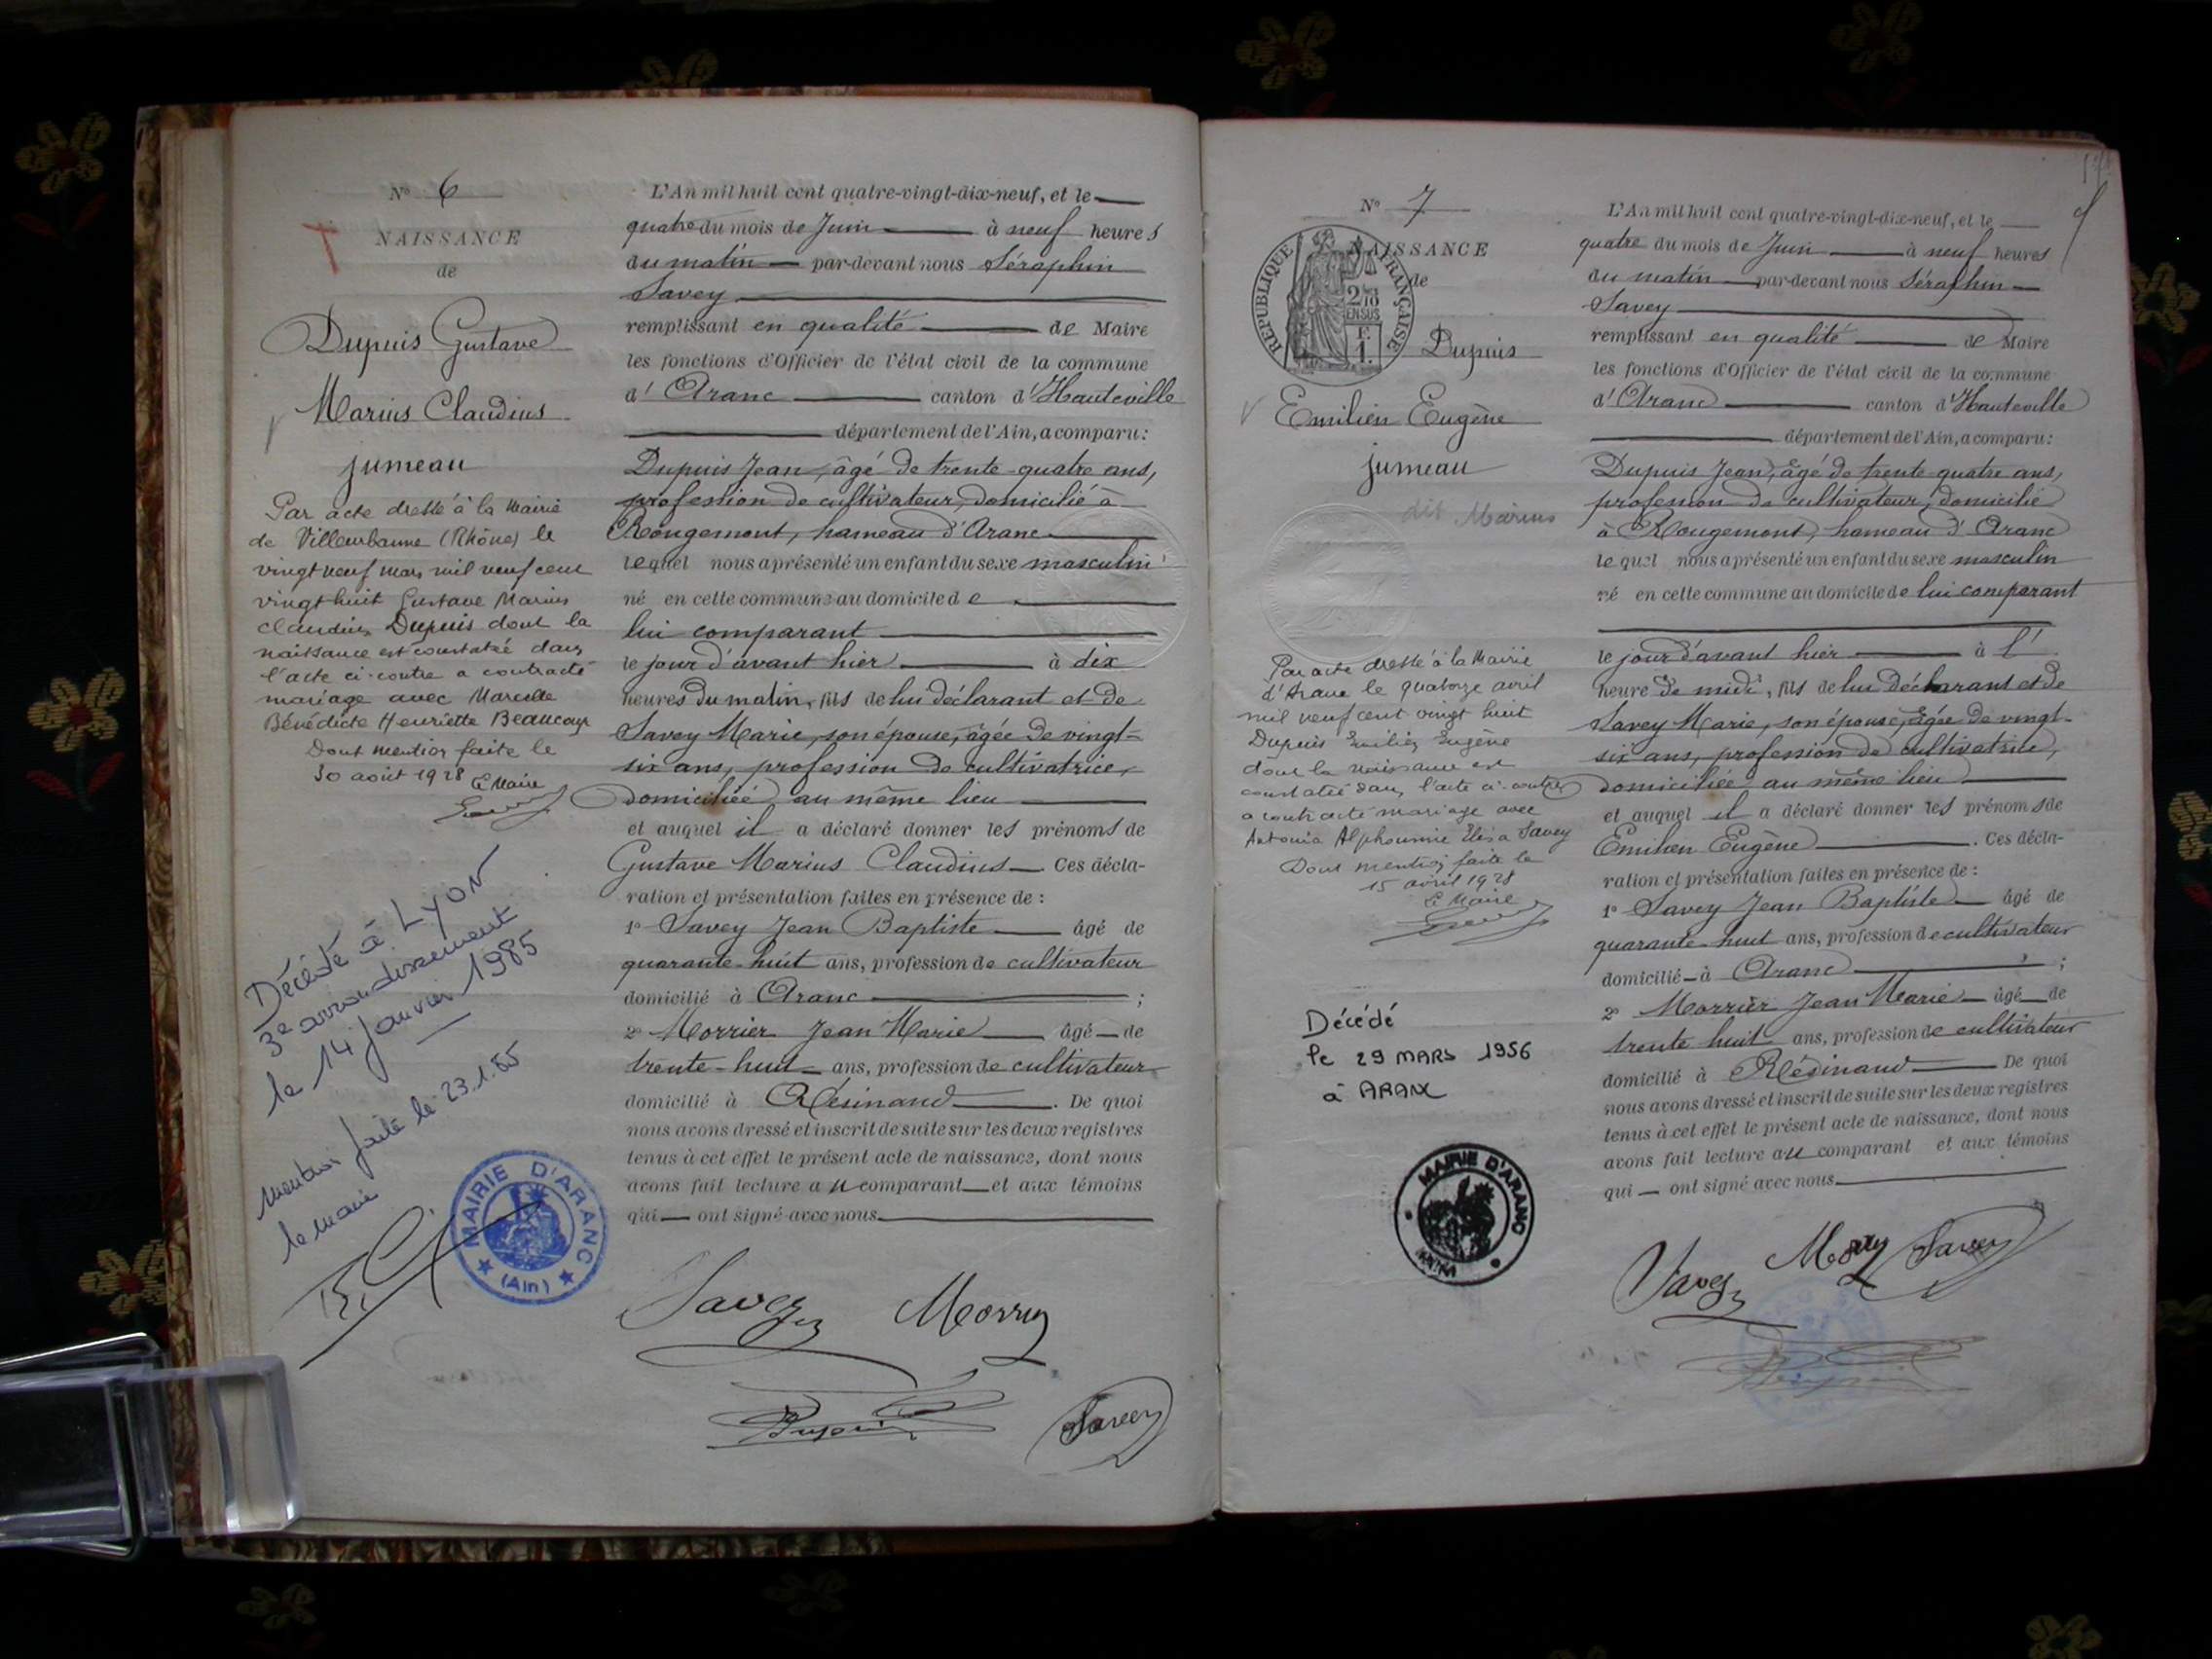 N° 6
NAISSANCE
de
Dupuis Gustave
Marius Claudius
jumeau
Par acte dressé à la Mairie
de Villeurbanne (Rhône) le
vingt neuf mars mil neuf cent
vingt huit Gustave Marius
Claudius Dupuis dont la
naissance est constatée dans
l'acte ci-contre a contracté
mariage avec Marcelle
Bénédicte Henriette Beaucoup
Dont mention faite le
30 août 1928 Le Maire
Décédé à LYON
3e arrondissement
le 14 janvier 1985
Mention faite le 23.1.85
le maire
MAIRIE D'ARANC
(Ain)
L'An mil huit cent quatre-vingt-dix-neuf, et le
quatre du mois de Juin à neuf heures
du matin par-devant nous Séraphin
Savey
remplissant en qualité de Maire
les fonctions d'Officier de l'état civil de la commune
d' Aranc canton d'Hauteville
département de l'Ain, a comparu:
Dupuis Jean, âgé de trente-quatre ans,
profession de cultivateur, domicilié à
Rougemont, hameau d'Aranc
lequel nous a présenté un enfant du sexe masculin
né en cette commune au domicile de
lui comparant
le jour d'avant hier à dix
heures du matin, fils de lui déclarant et de
Savey Marie, son épouse, âgée de vingt-
six ans, profession de cultivatrice,
domiciliée au même lieu
et auquel il a déclaré donner les prénoms de
Gustave Marius Claudius Ces décla-
ration et présentation faites en présence de :
1° Savey Jean Baptiste âgé de
quarante-huit ans, profession de cultivateur
domicilié à Aranc ;
2° Morrier Jean Marie âgé de
trente-huit ans, profession de cultivateur
domicilié à Résinand. De quoi
nous avons dressé et inscrit de suite sur les deux registres
tenus à cet effet le présent acte de naissance, dont nous
avons fait lecture au comparant et aux témoins
qui ont signé avec nous.
Savey Morrier
Dupuis Savey
N° 7
NAISSANCE
de
RÉPUBLIQUE FRANÇAISE
2/10
EN SUS
F.
1.
Dupuis
Emilien Eugène
jumeau
dit Marius
Par acte dressé à la Mairie
d'Aranc le quatorze avril
mil neuf cent vingt huit
Dupuis Emilien Eugène
dont la naissance est
constatée dans l'acte ci-contre
a contracté mariage avec
Antonia Alphonsine Elisa Savey
Dont mention faite le
15 avril 1928
Le Maire
Décédé
le 29 MARS 1956
à ARANC
MAIRIE D'ARANC
L'An mil huit cent quatre-vingt-dix-neuf, et le
quatre du mois de Juin à neuf heures
du matin par-devant nous Séraphin
Savey
remplissant en qualité de Maire
les fonctions d'Officier de l'état civil de la commune
d' Aranc canton d'Hauteville
département de l'Ain, a comparu:
Dupuis Jean, âgé de trente-quatre ans,
profession de cultivateur, domicilié
à Rougemont, hameau d'Aranc
lequel nous a présenté un enfant du sexe masculin
né en cette commune au domicile de lui comparant
le jour d'avant hier à l'
heure de midi, fils de lui déclarant et de
Savey Marie, son épouse, âgée de vingt-
six ans, profession de cultivatrice,
domiciliée au même lieu
et auquel il a déclaré donner les prénoms de
Emilien Eugène. Ces décla-
ration et présentation faites en présence de :
1° Savey Jean Baptiste âgé de
quarante-huit ans, profession de cultivateur
domicilié à Aranc ;
2° Morrier Jean Marie âgé de
trente huit ans, profession de cultivateur
domicilié à Résinand De quoi
nous avons dressé et inscrit de suite sur les deux registres
tenus à cet effet le présent acte de naissance, dont nous
avons fait lecture au comparant et aux témoins
qui ont signé avec nous.
Savey Morrier Savey
Dupuis